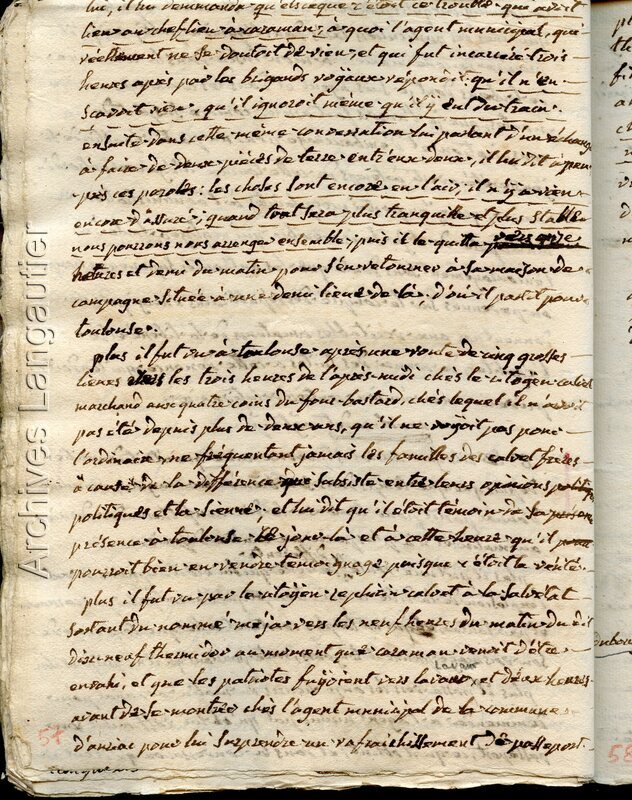 lui, il lui demanda qu'elsceque c'étoit ce trouble que avoit
lieu au cheflieu à caraman; à quoi l'agent municipal, qui
réellement ne se doutoit de rien, et qui fut incarcéré trois
heures après par les brigands royaux répondit qu'il n'en
scavoit rien, qu'il ignoroit même qu'il y eut du train.
ensuite dans cette même conversation lui parlant d'un
à faire de deux pièces de terre entr'eux deux, il lui dit
près ces paroles: les choses sont encore en l'air, il n'y a rien
encore d'assuré; quand tout sera plus tranquille et plus stable
nous pourrons nous arranger ensemble; puis il le quitta vers onze
heures et demi du matin pour s'en retourner à sa maison de
campagne située à une demi lieue de là. d'où il partit pour
toulouse.
plus il fut vu à toulouse après une route de cinq grosses
lieues vers les trois heures de l'après-midi chès le citoÿen calvet
marchand aux quatre coins du four-bastard, chès lequel il n'avoit
pas été depuis plus de deux ans, qu'il ne voÿoit pas pour
l'ordinaire ne fréquentant jamais les familles des calvet frères
à cause de la différence que subsiste entre leurs opinions
politiques et la sienne, et lui dit qu'il étoit témoin de sa
présence à toulouse ce jour-là et à cette heure qu'il
pourroit bien en rendre témoignage puisque c'étoit la vérité.
plus il fut vu par le citoÿen calvet à la salvetat
sortant du nommé meja vers les neuf heures du matin du dit
dixneuf thermidor au moment que caraman venoit d'être
envahi, et que les patriotes fuÿoient vers lavaur, et deux heures
lavaur
avant de se montrer chès l'agent municipal de la commune
d'auriac pour lui surprendre un rafraichissement de passeport.
57
58
Archives Langautier